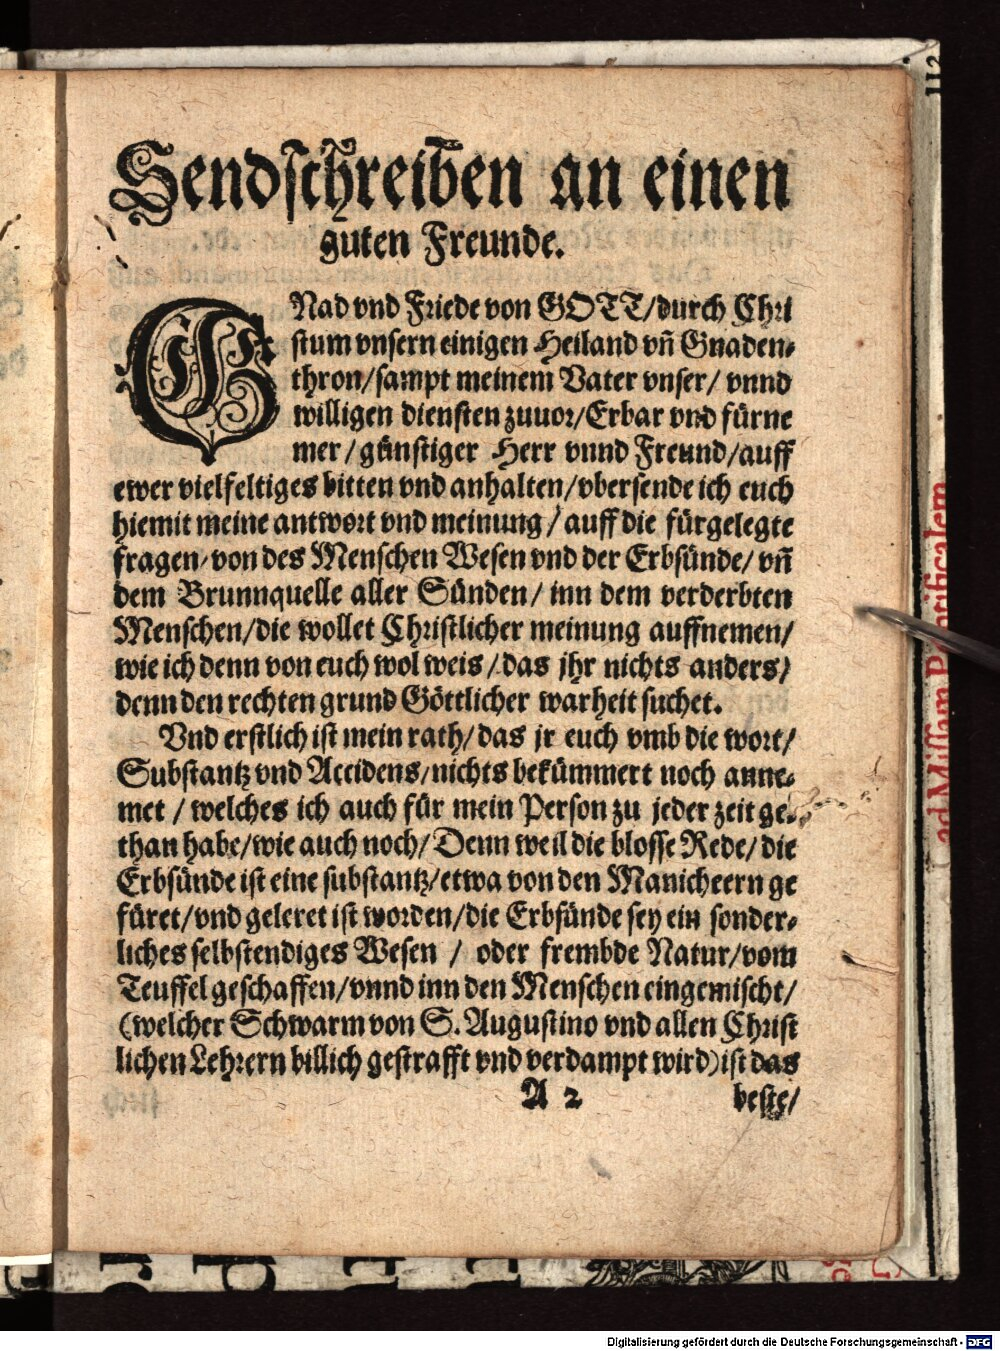 Sendschreiben an einen
guten Freunde.
GNad vnd Friede von GOTT/durch Chri
stum vnsern einigen Heiland vñ Gnaden-
thron/sampt meinem Vater vnser/ vnnd
willigen diensten zuuor/Erbar vnd fürne
mer/günstiger Herr vnnd Freund/auff
ewer vielfeltiges bitten vnd anhalten/vbersende ich euch
hiemit meine antwort vnd meinung/auff die fürgelegte
fragen/von des Menschen Wesen vnd der Erbsünde/ vñ
dem Brunnquelle aller Sünden/ inn dem verderbten
Menschen/die wollet Christlicher meinung auffnemen/
wie ich denn von euch wol weis/das jhr nichts anders/
denn den rechten grund Göttlicher warheit suchet.
Vnd erstlich ist mein rath/das jr euch vmb die wort/
Substantz vnd Accidens/nichts bekümmert noch anne-
met / welches ich auch für mein Person zu jeder zeit ge-
than habe/wie auch noch/Denn weil die blosse Rede/die
Erbsünde ist eine substantz/etwa von den Manicheern ge
füret/vnd geleret ist worden/die Erbsünde sey ein sonder-
liches selbstendiges Wesen / oder frembde Natur/vom
Teuffel geschaffen/vnnd inn den Menschen eingemischt/
(welcher Schwarm von S. Augustino vnd allen Christ
lichen Lehrern billich gestrafft vnd verdampt wird)ist das
A 2 beste/
112
ad Missam
Digitalisierung gefördert durch die Deutsche Forschungsgemeinschaft - DFG